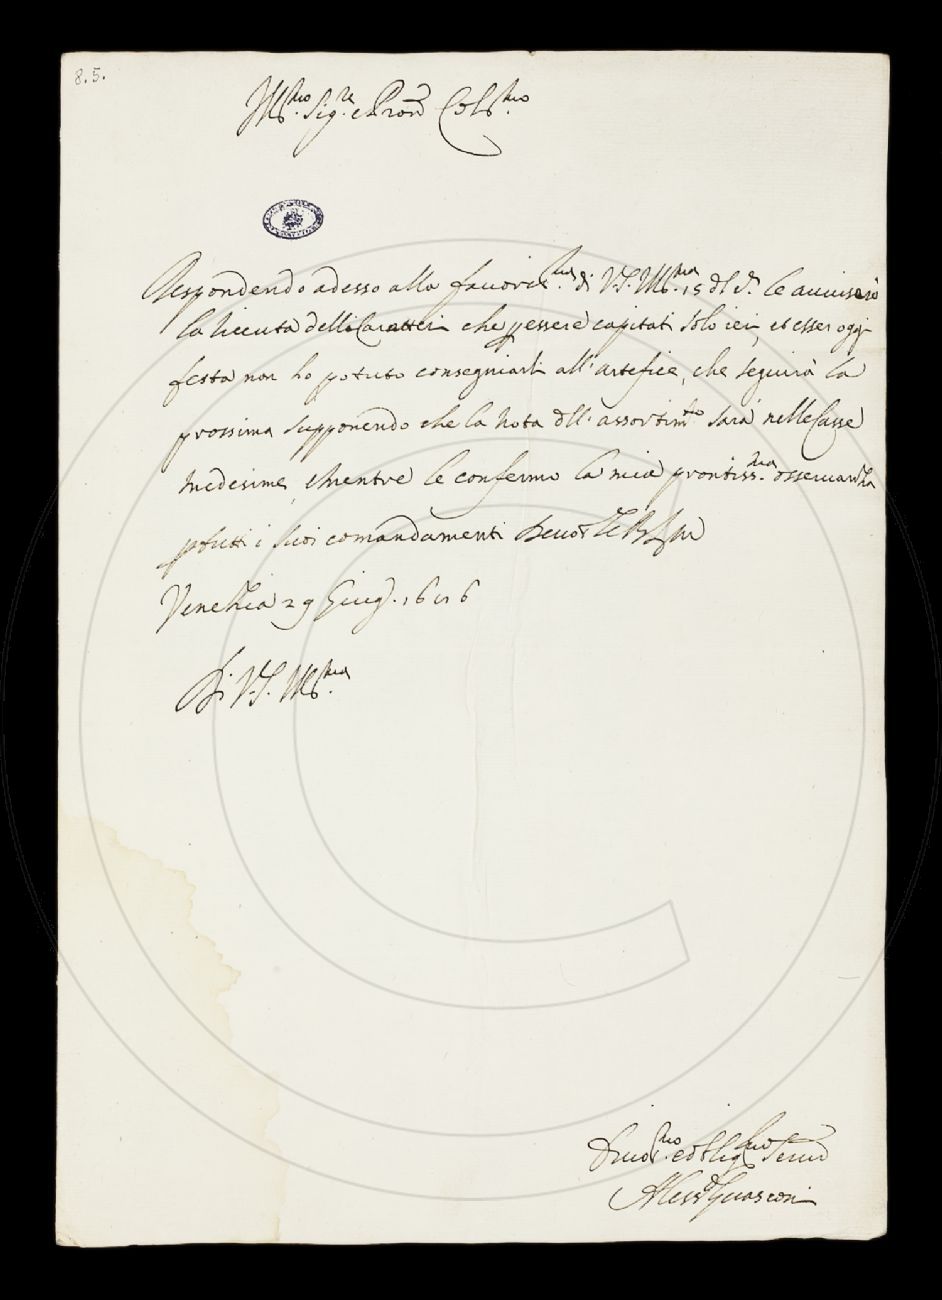 8.5.
Ill.mo Sig.re e Pron Col.mo
Rispondendo adesso alla favorit.ma di V.S. Ill.ma 15 del d.o le avviserò
la riceuta delli Caratteri che p essere capitati solo ieri, et esser oggi
festa non ho potuto consegniarli all'artefice, che seguirà la
prossima supponendo che la nota dell'assortim.to sarà nelle Casse
medesime, e mentre le confermo la mia prontiss.ma osservanza
p tutti i suoi comandamenti
Venezia 29 Giug.
Di V.S. Ill.ma
Devot.mo et Oblig.mo Serv.
Aless.o Guasconi